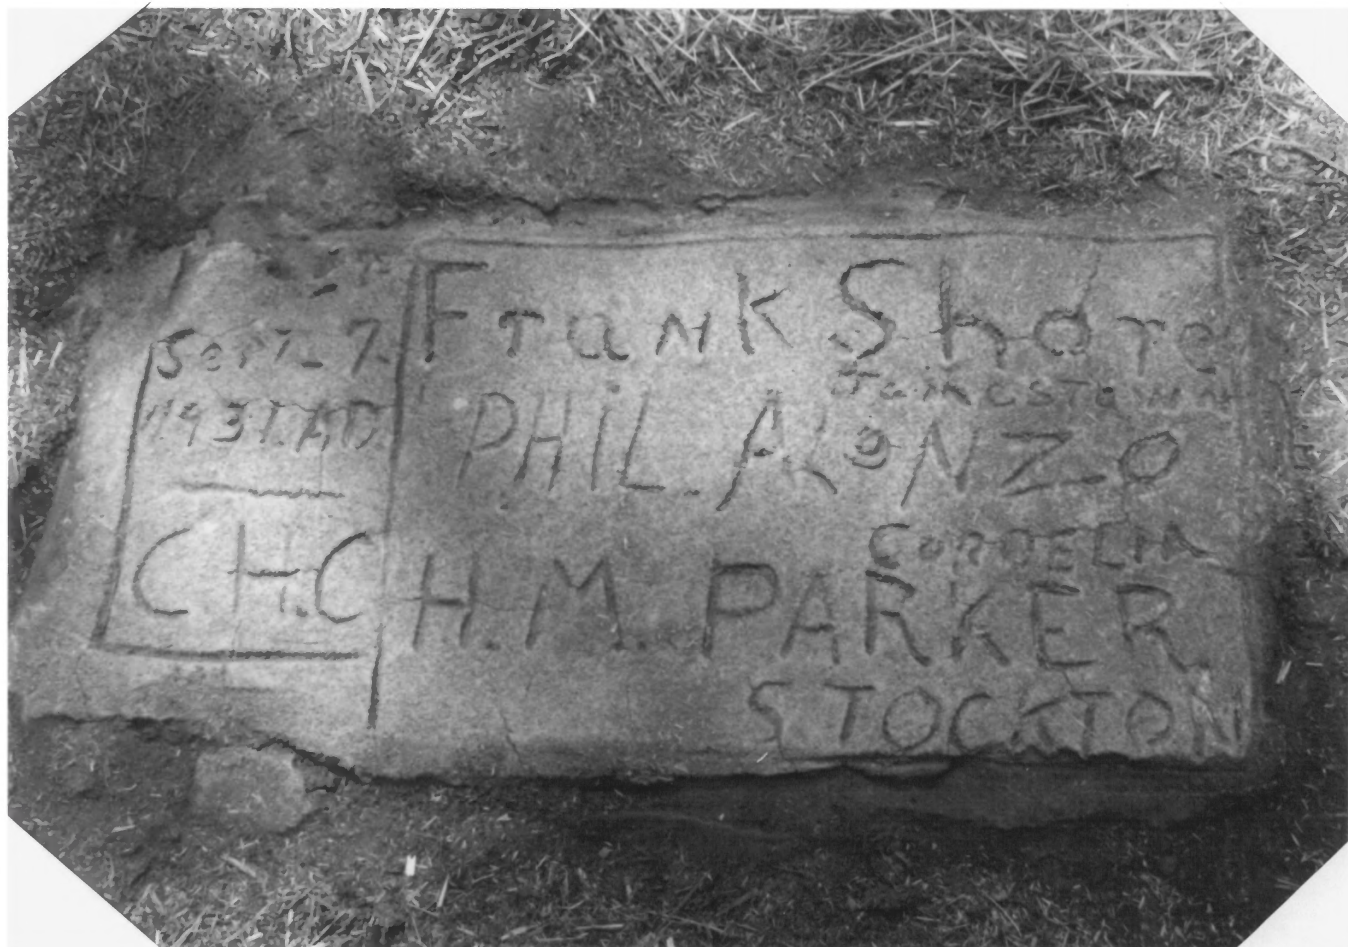 Sept. 7.
1931. A.D.
C.H.C
Frank Shore
Jamestown
PHiL. ALoNZO
CORDELIA
H.M. PARKER
STOCKTON